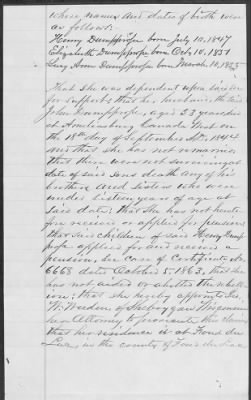 whose names and dates of birth were
as follows:
Henry Dumpprope born July 10, 1847
Elizabeth Dumpprope born Oct, 10. 1851
Lucy Ann Dumpprope born March 10, 1855
That she was dependent upon
for support; that her husband, the said
John Dumpprope, aged 23 years died
at Canada West on
the 18th day of September
and that she has not remarried
that there were not surviving at
date of said sons death any of his
brothers and sisters who were
under sixteen years of age at
said date; that she has not hereto-
fore received or applied for pension
that said children of said Henry Dump-
prope applied for and received a
pension. See case of Certificate No.
6668 dated October 5. 1863, that she
has not aided or abetted the rebell-
ion; that she hereby appoints
W. Weeden of Sheboygan Wisconsin
her Attorney to prosecute this claim
that her residence is at Fond du
Lac, in the county of Fond du Lac